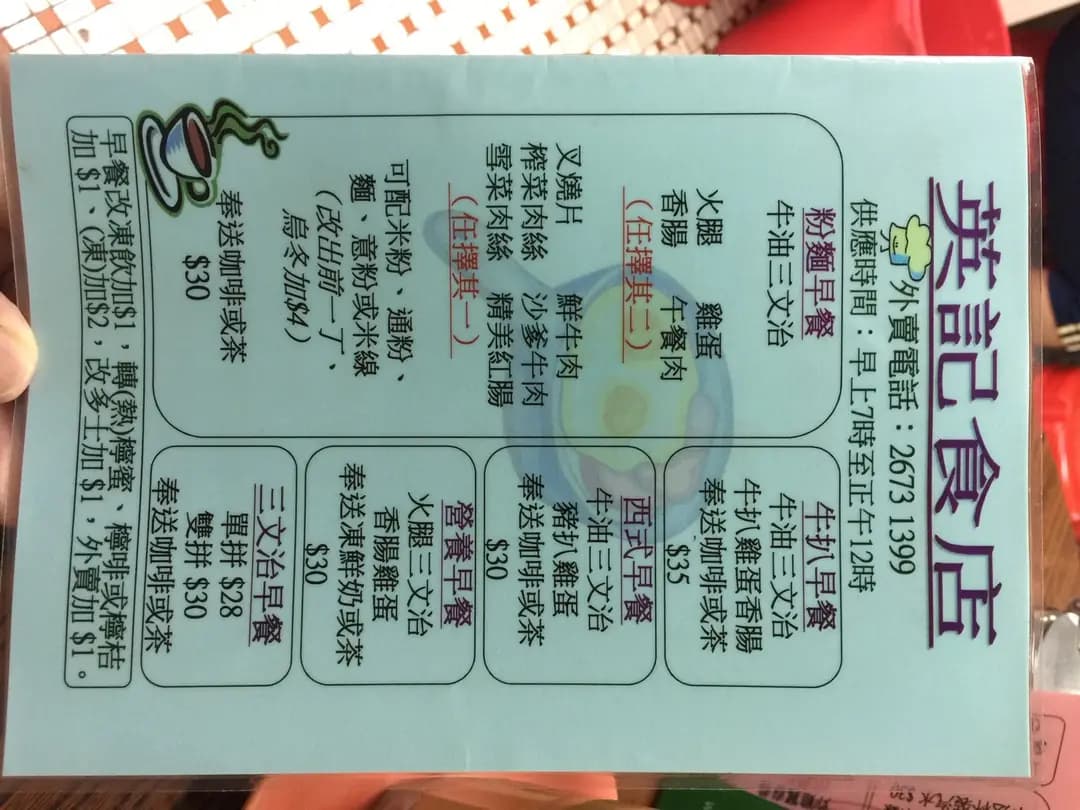 英記食店
外賣電話：2673 1399
供應時間：早上7時至正午12時
粉麵早餐
牛油三文治
火腿 雞蛋
香腸 午餐肉
（任擇其二）
叉燒片 鮮牛肉
榨菜肉絲 沙爹牛肉
雪菜肉絲 精美紅腸
（任擇其一）
可配米粉、通粉、
麵、意粉或米線
（改出前一丁、
烏冬加$4）
奉送咖啡或茶
$30
牛扒早餐
牛油三文治
牛扒雞蛋香腸
奉送咖啡或茶
$35
西式早餐
牛油三文治
豬扒雞蛋
奉送咖啡或茶
$30
營養早餐
火腿三文治
香腸雞蛋
奉送凍鮮奶或茶
$30
三文治早餐
單拼 $28
雙拼 $30
奉送咖啡或茶
早餐改凍飲加$1，轉(熱)檸蜜、檸啡或檸桔
加 $1、(凍)加$2，改多士加 $1，外賣加 $1。